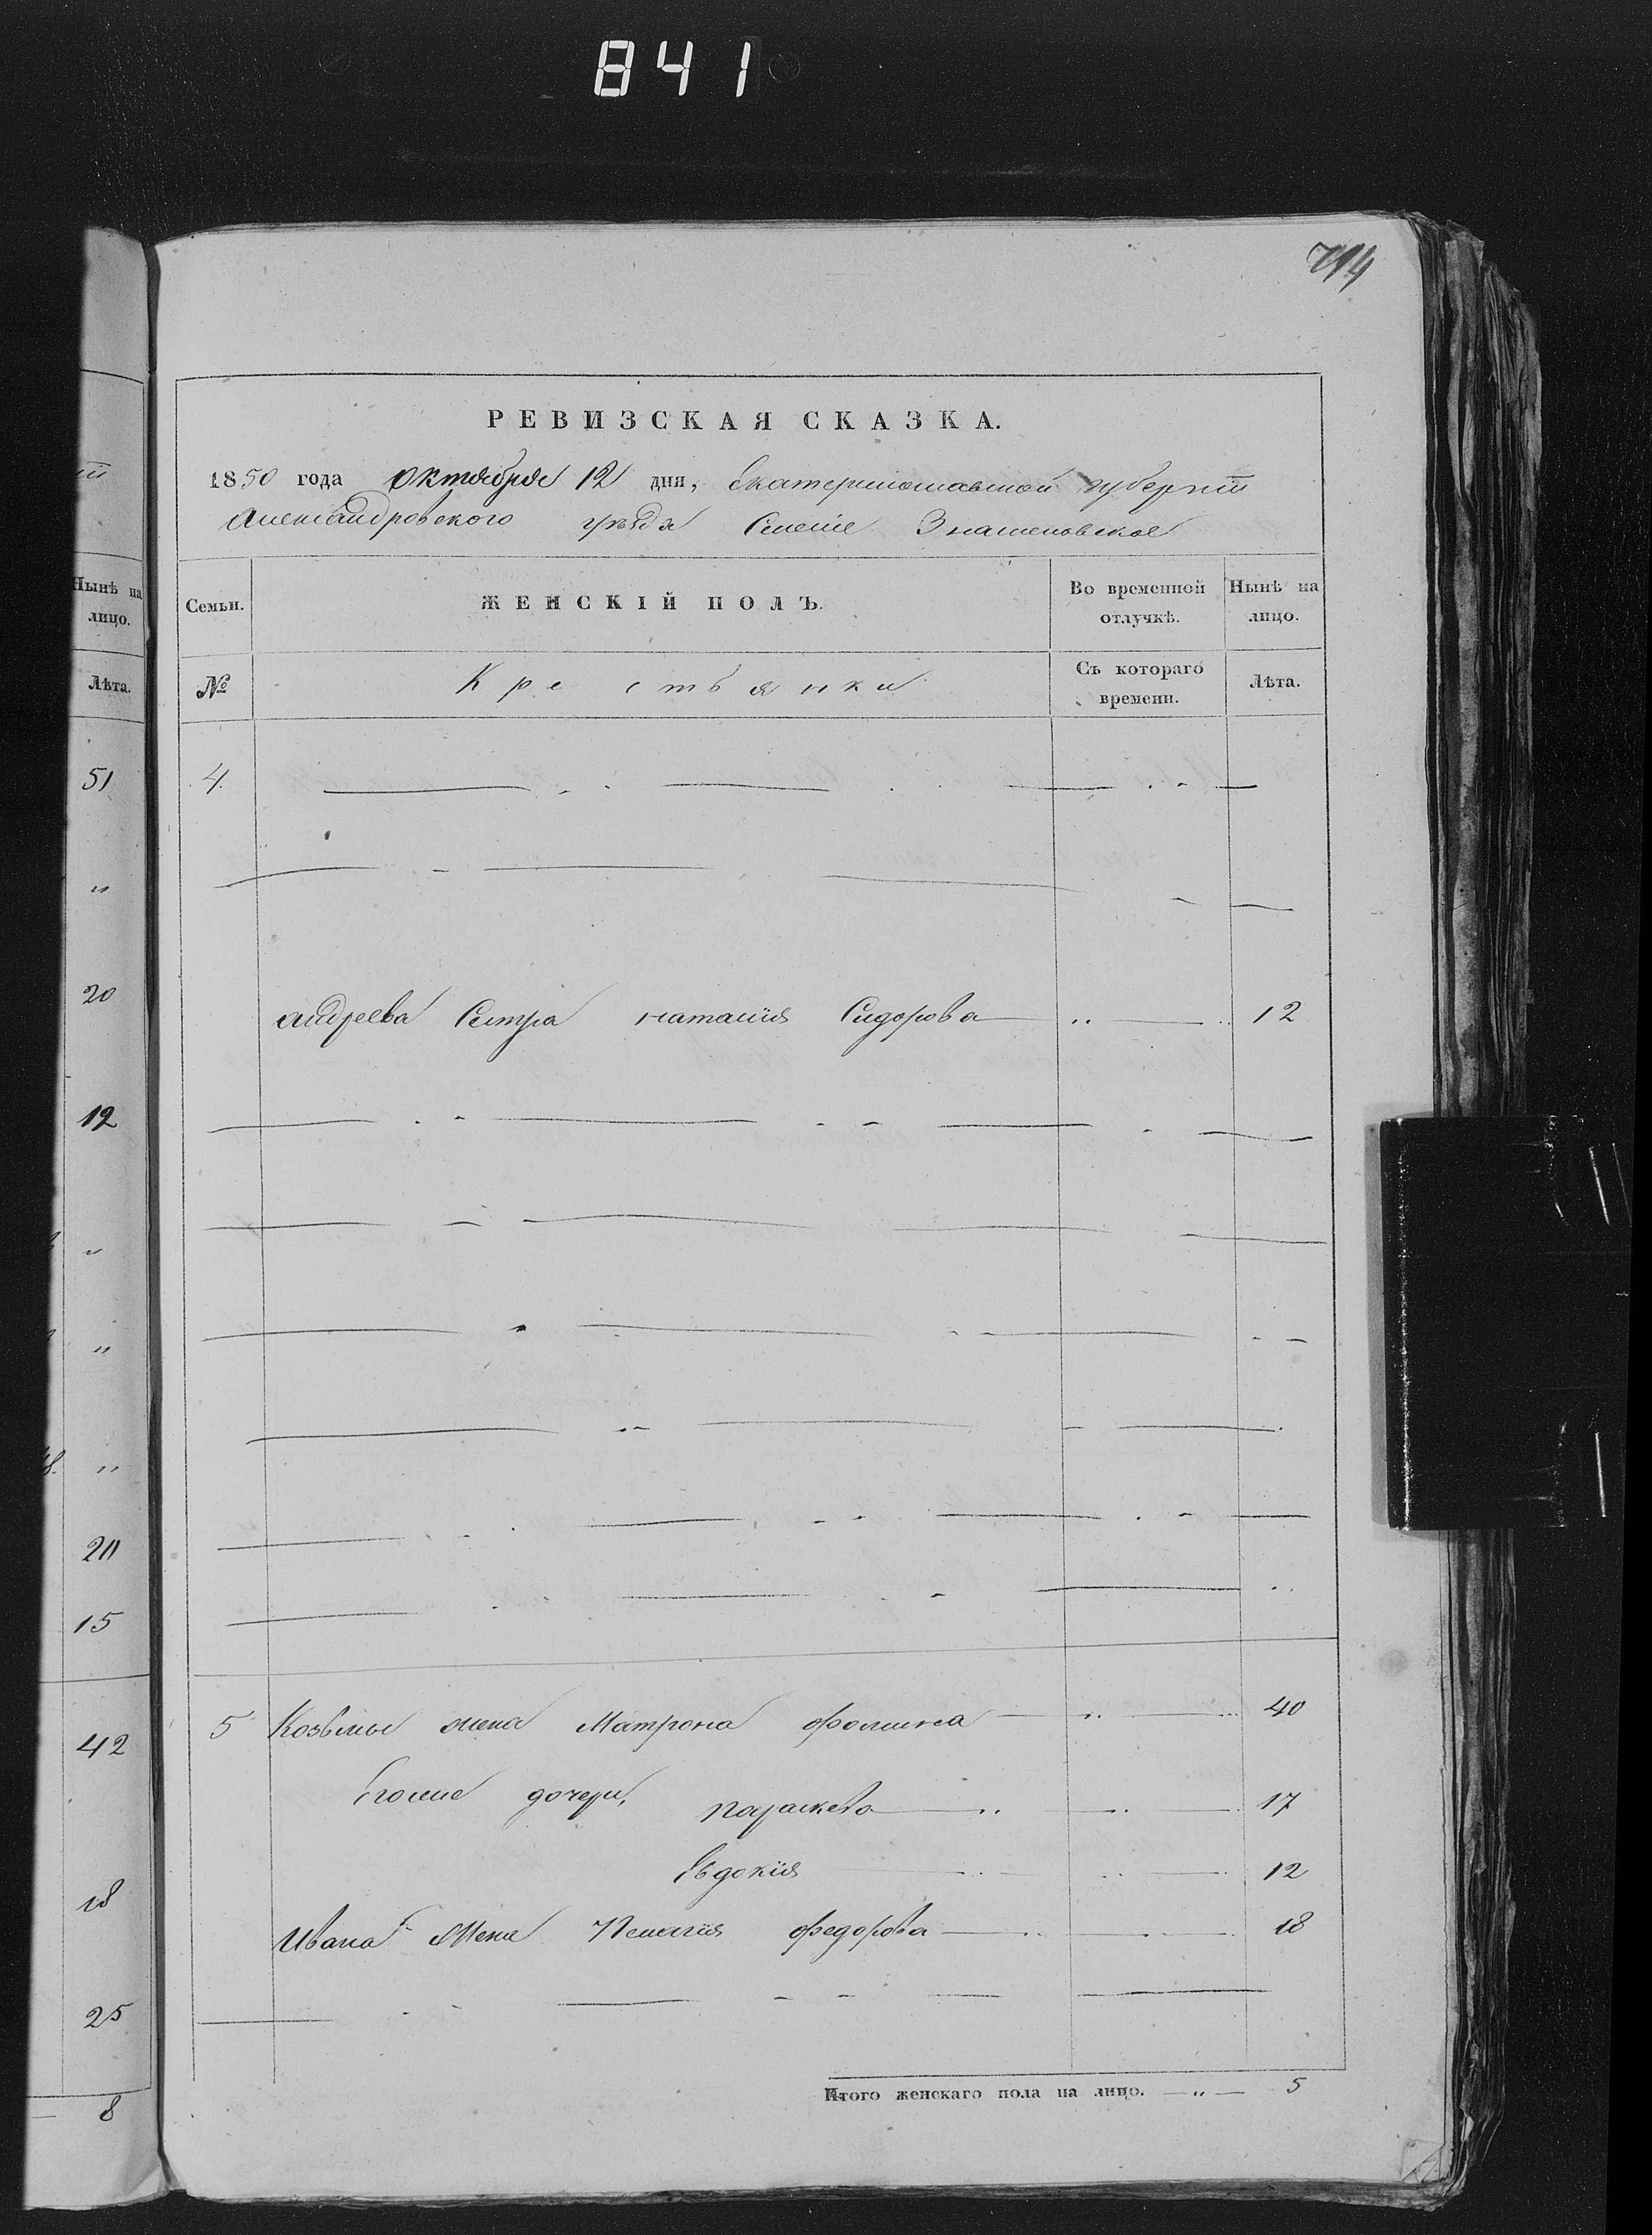 841
714
РЕВИЗСКАЯ СКАЗКА.
1850 года октября 12 дня, Екатеринославской губерніи
Александровского уезда Селеніе Знаменовское
Нынѣ на лицо.
Лѣта.
51
"
20
12
"
"
"
20
15
42
18
25
8
Семьи. ЖЕНСКІЙ ПОЛЪ. Во временной отлучкѣ. Нынѣ на лицо.
№ Крестьянки Съ котораго времени. Лѣта.
4
андреева Сестра наталія Сидорова " 12
5 Козьмы жена Матрона фомина " 40
Егоже дочери, параскева " " 17
Евдокія " " 12
Ивана жена Пелагія федорова " 18
Итого женскаго пола на лицо. — " — 5